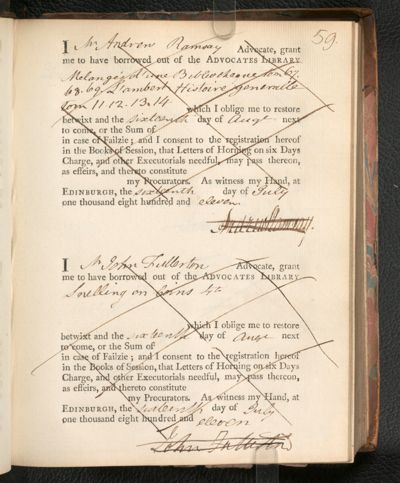 59.
I Mr Andrew Ramsay Advocate, grant
me to have borrowed out of the ADVOCATES LIBRARY
Melanges d'une Bibliotheque tom 67.
68. 69. Lambert Histoire generalle
tom 11. 12. 13. 14. which I oblige me to restore
betwixt and the sixteenth day of Augt next
to come, or the Sum of
in case of Failzie; and I consent to the registration hereof
in the Books of Session, that Letters of Horning on six Days
Charge, and other Executorials needful, may pass thereon,
as effeirs, and thereto constitute
my Procurators. As witness my Hand, at
EDINBURGH, the sixteenth day of July
one thousand eight hundred and eleven.
Andrew Ramsay.
I Mr John Fullerton Advocate, grant
me to have borrowed out of the ADVOCATES LIBRARY
Snelling on Coins 4to
which I oblige me to restore
betwixt and the sixteenth day of Augt next
to come, or the Sum of
in case of Failzie; and I consent to the registration hereof
in the Books of Session, that Letters of Horning on six Days
Charge, and other Executorials needful, may pass thereon,
as effeirs, and thereto constitute
my Procurators. As witness my Hand, at
EDINBURGH, the sixteenth day of July
one thousand eight hundred and eleven
John Fullerton